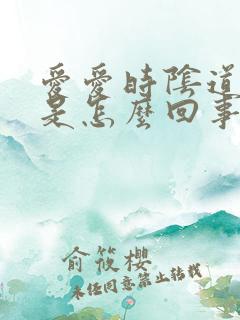 愛愛時陰道
是怎麼回事
俞筱櫻
未经同意禁止转载